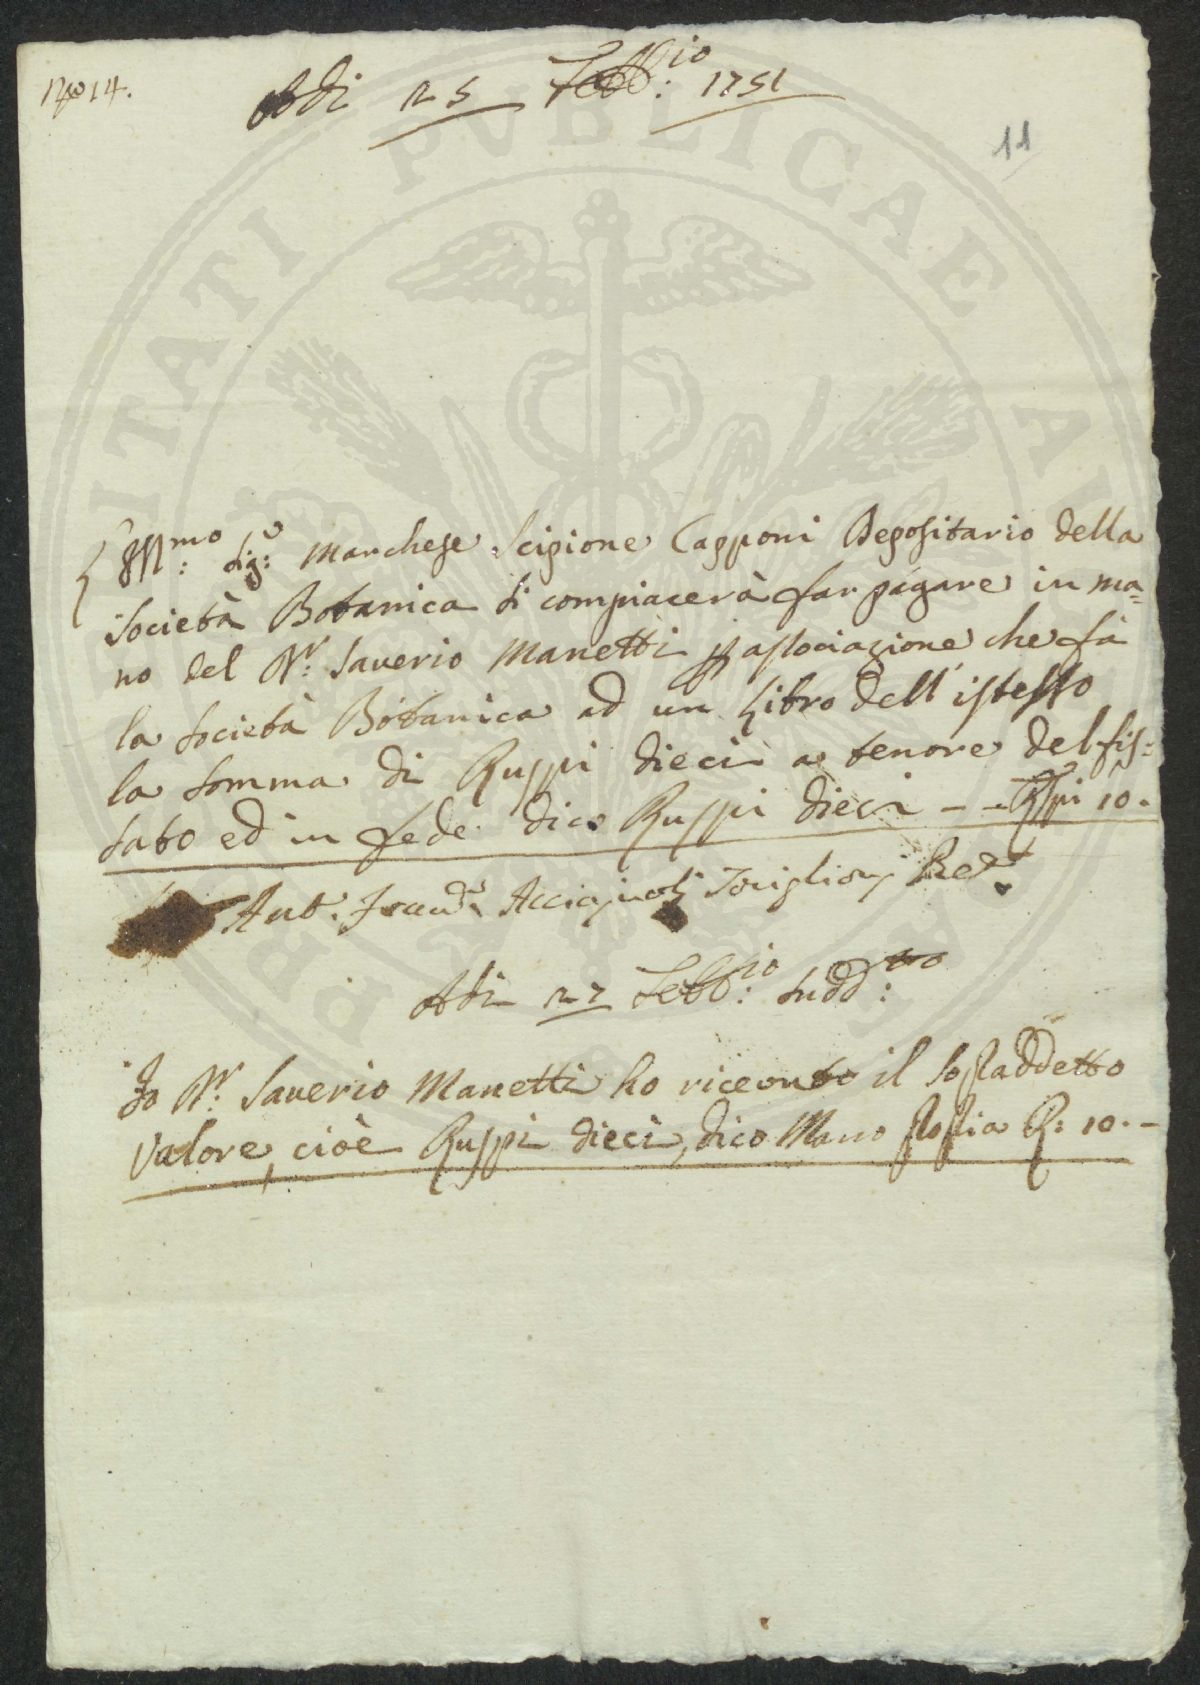 N° 14.
Adi 25 Febb:io 1751
11
L'Ill:mo Sig:r Marchese Scipione Capponi Depositario della
Società Botanica si compiacerà far pagare in ma=
no del Dr: Saverio Manetti p associazione che fà
la Società Botanica ad un Libro dell' istesso
la somma di Ruspi dieci a tenore del fis=
sato ed in fede dico Ruspi dieci - - Rspi 10.
Ant. Acciajuoli
Adi 27 Febb:io sudd:tto
Io Dr: Saverio Manetti ho ricevuto il sopraddetto
valore, cioè Ruspi dieci, dico Mano propia R: 10. -
PUBLICAE